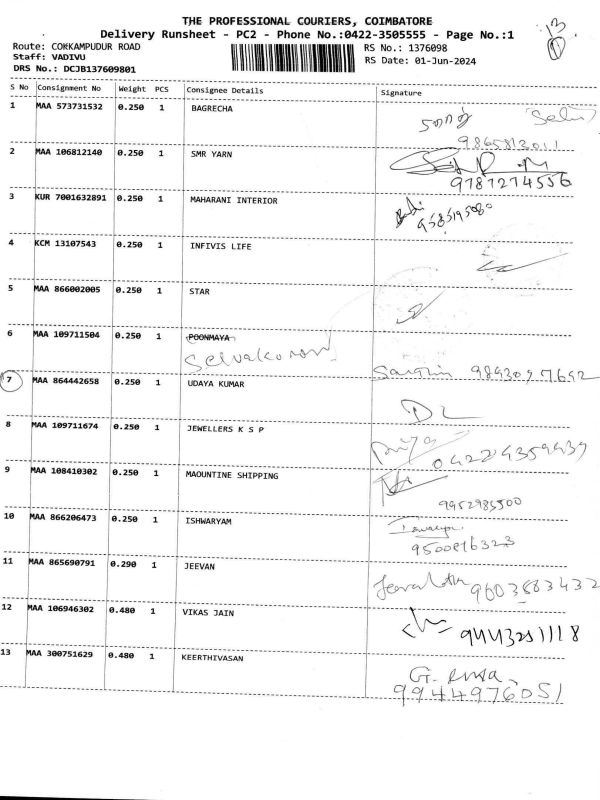 THE PROFESSIONAL COURIERS, COIMBATORE
Delivery Runsheet - PC2 - Phone No.:0422-3505555 - Page No.:1
13
1
Route: COKKAMPUDUR ROAD
RS No.: 1376098
Staff: VADIVU
RS Date: 01-Jun-2024
DRS No.: DCJB137609801
S No Consignment No Weight PCS Consignee Details Signature
1 MAA 573731532 0.250 1 BAGRECHA
9865813011
2 MAA 106812140 0.250 1 SMR YARN
9787274556
3 KUR 7001632891 0.250 1 MAHARANI INTERIOR
9585195080
4 KCM 13107543 0.250 1 INFIVIS LIFE
5 MAA 866002005 0.250 1 STAR
6 MAA 109711504 0.250 1 POONMAYA
Selvakumar
7 MAA 864442658 0.250 1 UDAYA KUMAR
8 MAA 109711674 0.250 1 JEWELLERS K S P
04224359439
9 MAA 108410302 0.250 1 MAOUNTINE SHIPPING
9952985500
10 MAA 866206473 0.250 1 ISHWARYAM
9500816323
11 MAA 865690791 0.290 1 JEEVAN
9603583432
12 MAA 106946302 0.480 1 VIKAS JAIN
9443251118
13 MAA 300751629 0.480 1 KEERTHIVASAN
9944976051